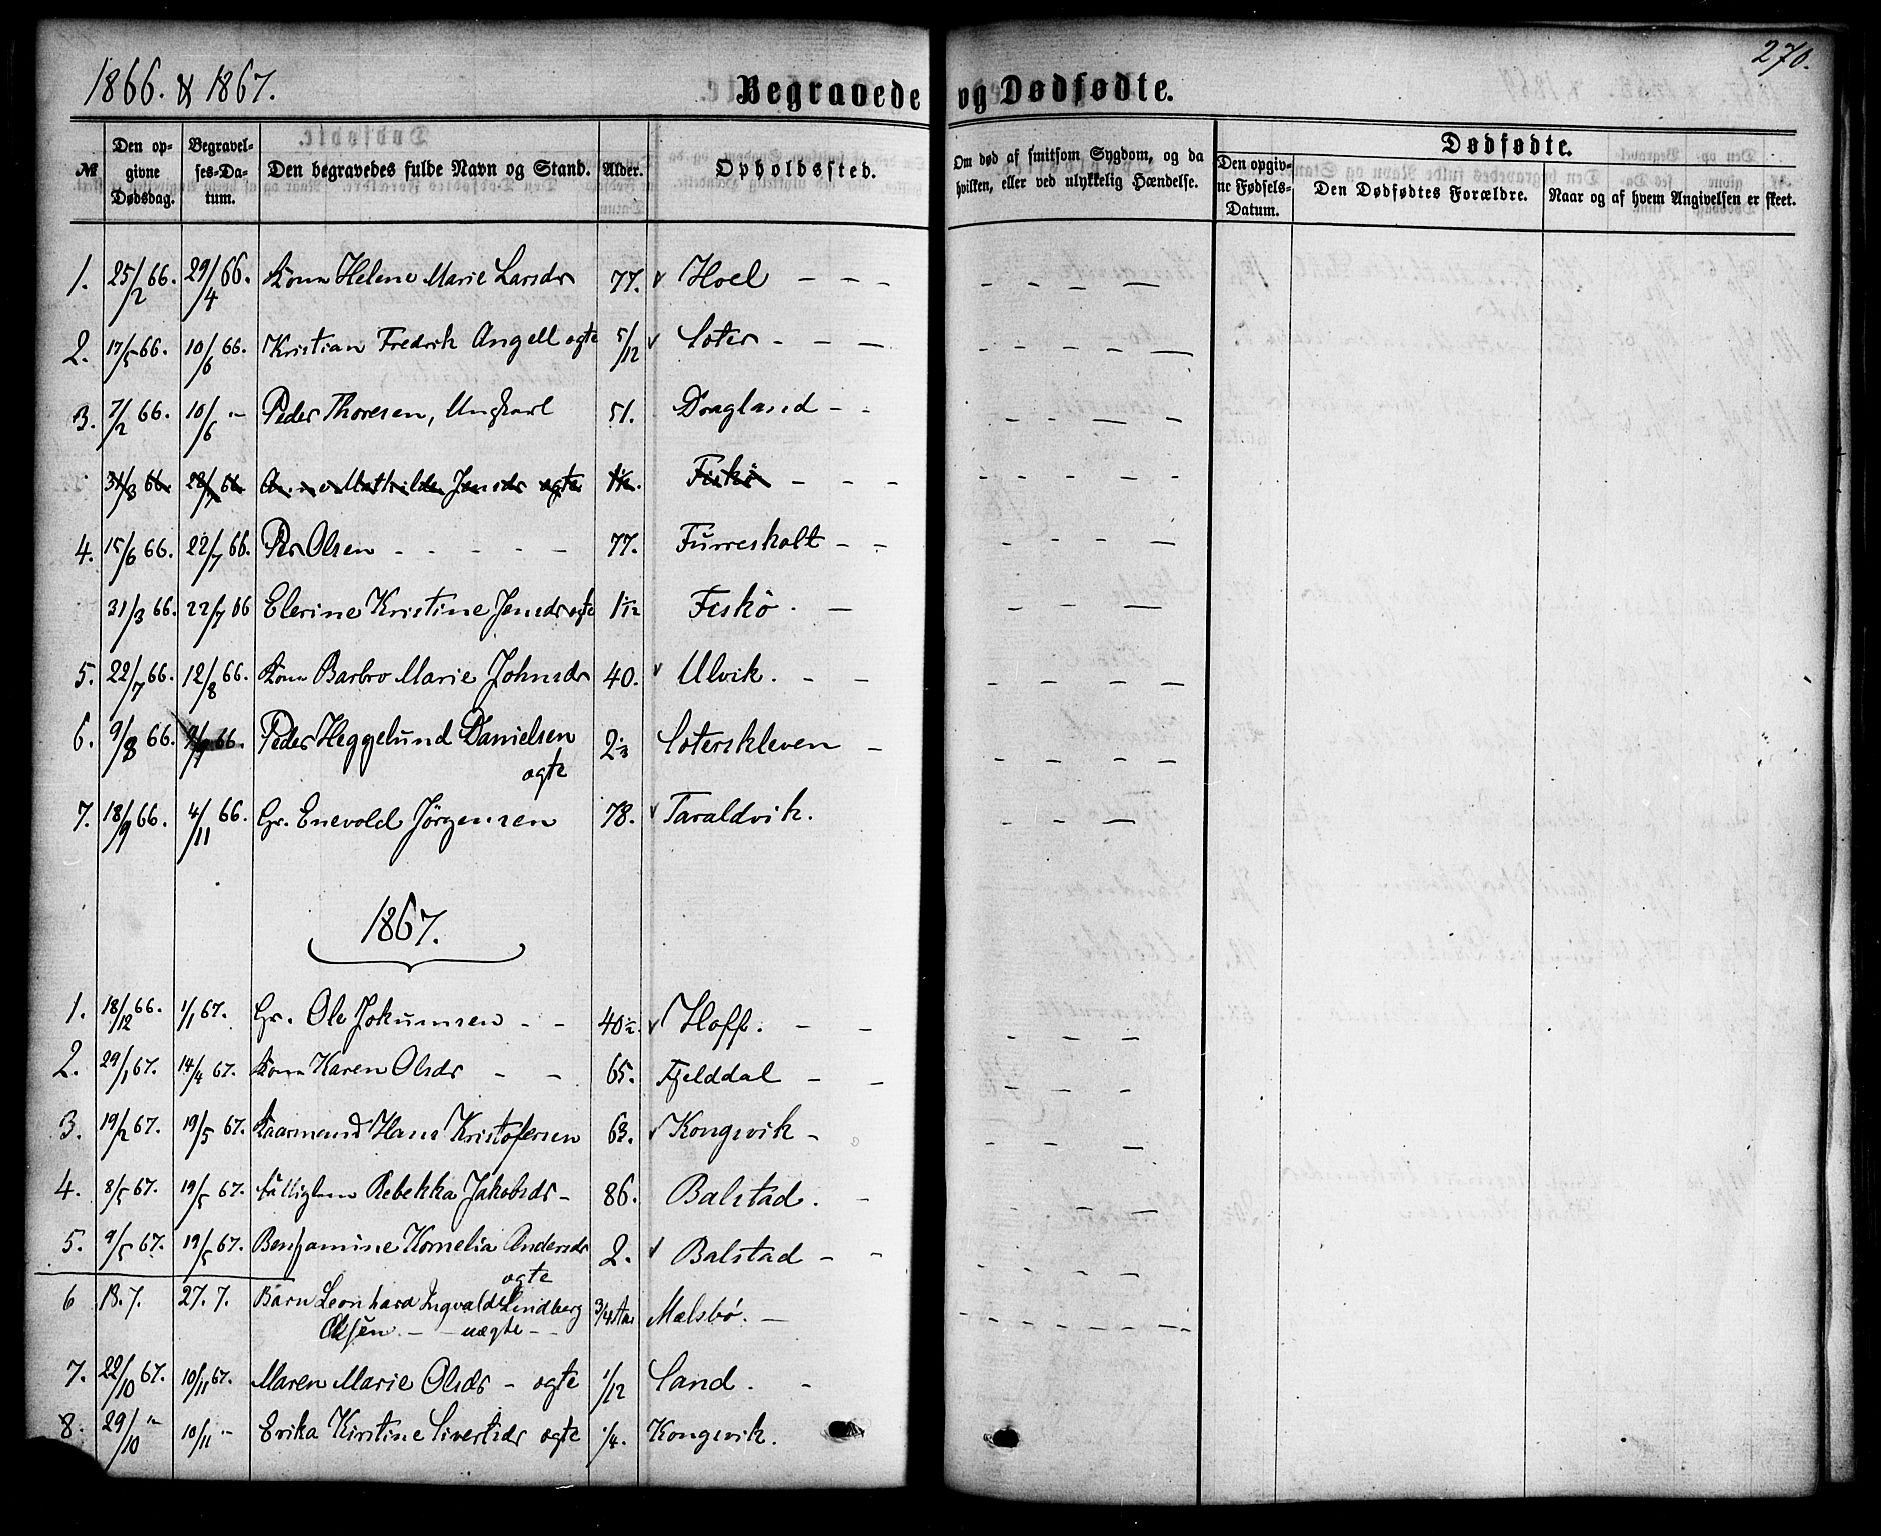 1866. & 1867. Begravede og Dødfødte. 270.
№ Den opgivne Dødsdag. Begravelses-Datum. Den begravedes fulde Navn og Stand. Alder. Opholdssted. Om død af smitsom Sygdom, og da hvilken, eller ved ulykkelig Hændelse. Dødfødte.
Den opgivne Fødsels-Datum. Den Dødfødtes Forældre. Naar og af hvem Angivelsen er skeet.
1. 25/2 66. 29/4 66. Kone Helene Marie Larsdr 77. v Hoel - - - - - - -
2. 17/5 66. 10/6 66. Kristian Fredrik Angell ægte 5/12 v Soter - - - - - - -
3. 7/2 66. 10/6 " Peder Thoresen, Ungkarl 51. Dragland - - - - - -
31/3 66. 66. Anne Mathilde Jensdr ægte Fiskö - - - - - - -
4. 15/6 66. 22/7 66. Per Olsen - - - - - 77. Furreskolt - - - - - -
31/3 66. 22/7 66 Elerine Kristine Jensdr ægte 1/12 Fiskö. - - - - -
5. 22/7 66. 12/8 66. Kone Barbro Marie Johnsdr 40. v Ulvik. - - - - - -
6. 9/8 66. 66. Peder Heggelund Danielsen 2 Soterskleven - - - - -
ægte
7. 18/9 66. 4/11 66. Gr. Enevold Jörgensen 78. v Taraldvik. - - -
1867.
1. 18/12 66. 1/1 67. Gr. Ole Jokumsen - - 40½ v Hoff. - - - - -
2. 29/1 67. 14/4 67. Kone Karen Olsdr - - 65. Fjelddal - - - - -
3. 19/2 67. 19/5 67. Kaarmand Hans Kristofersen 63. v Kongsvik - - - -
4. 8/5 67. 19/5 67. Fattiglem Rebekka Jakobsdr - 86. Balstad. - - - -
5. 9/5 67. 19/5 67. Benjamine Kornelia Andersdr 2. v Balstad - - - - -
ægte
6 13.7. 27.7. Barn Leonhard Ingvald Lindberg 3/4 Aar Mælsbö. - - - - - - - -
Olsen. - - uægte - -
7. 22/10 67. 10/11 67. Maren Marie Olsdr - ægte 1/12 Sand. -
8. 29/10 " 10/11 " Erika Kirstine Sivertsdr ægte 1/4. Kongsvik.